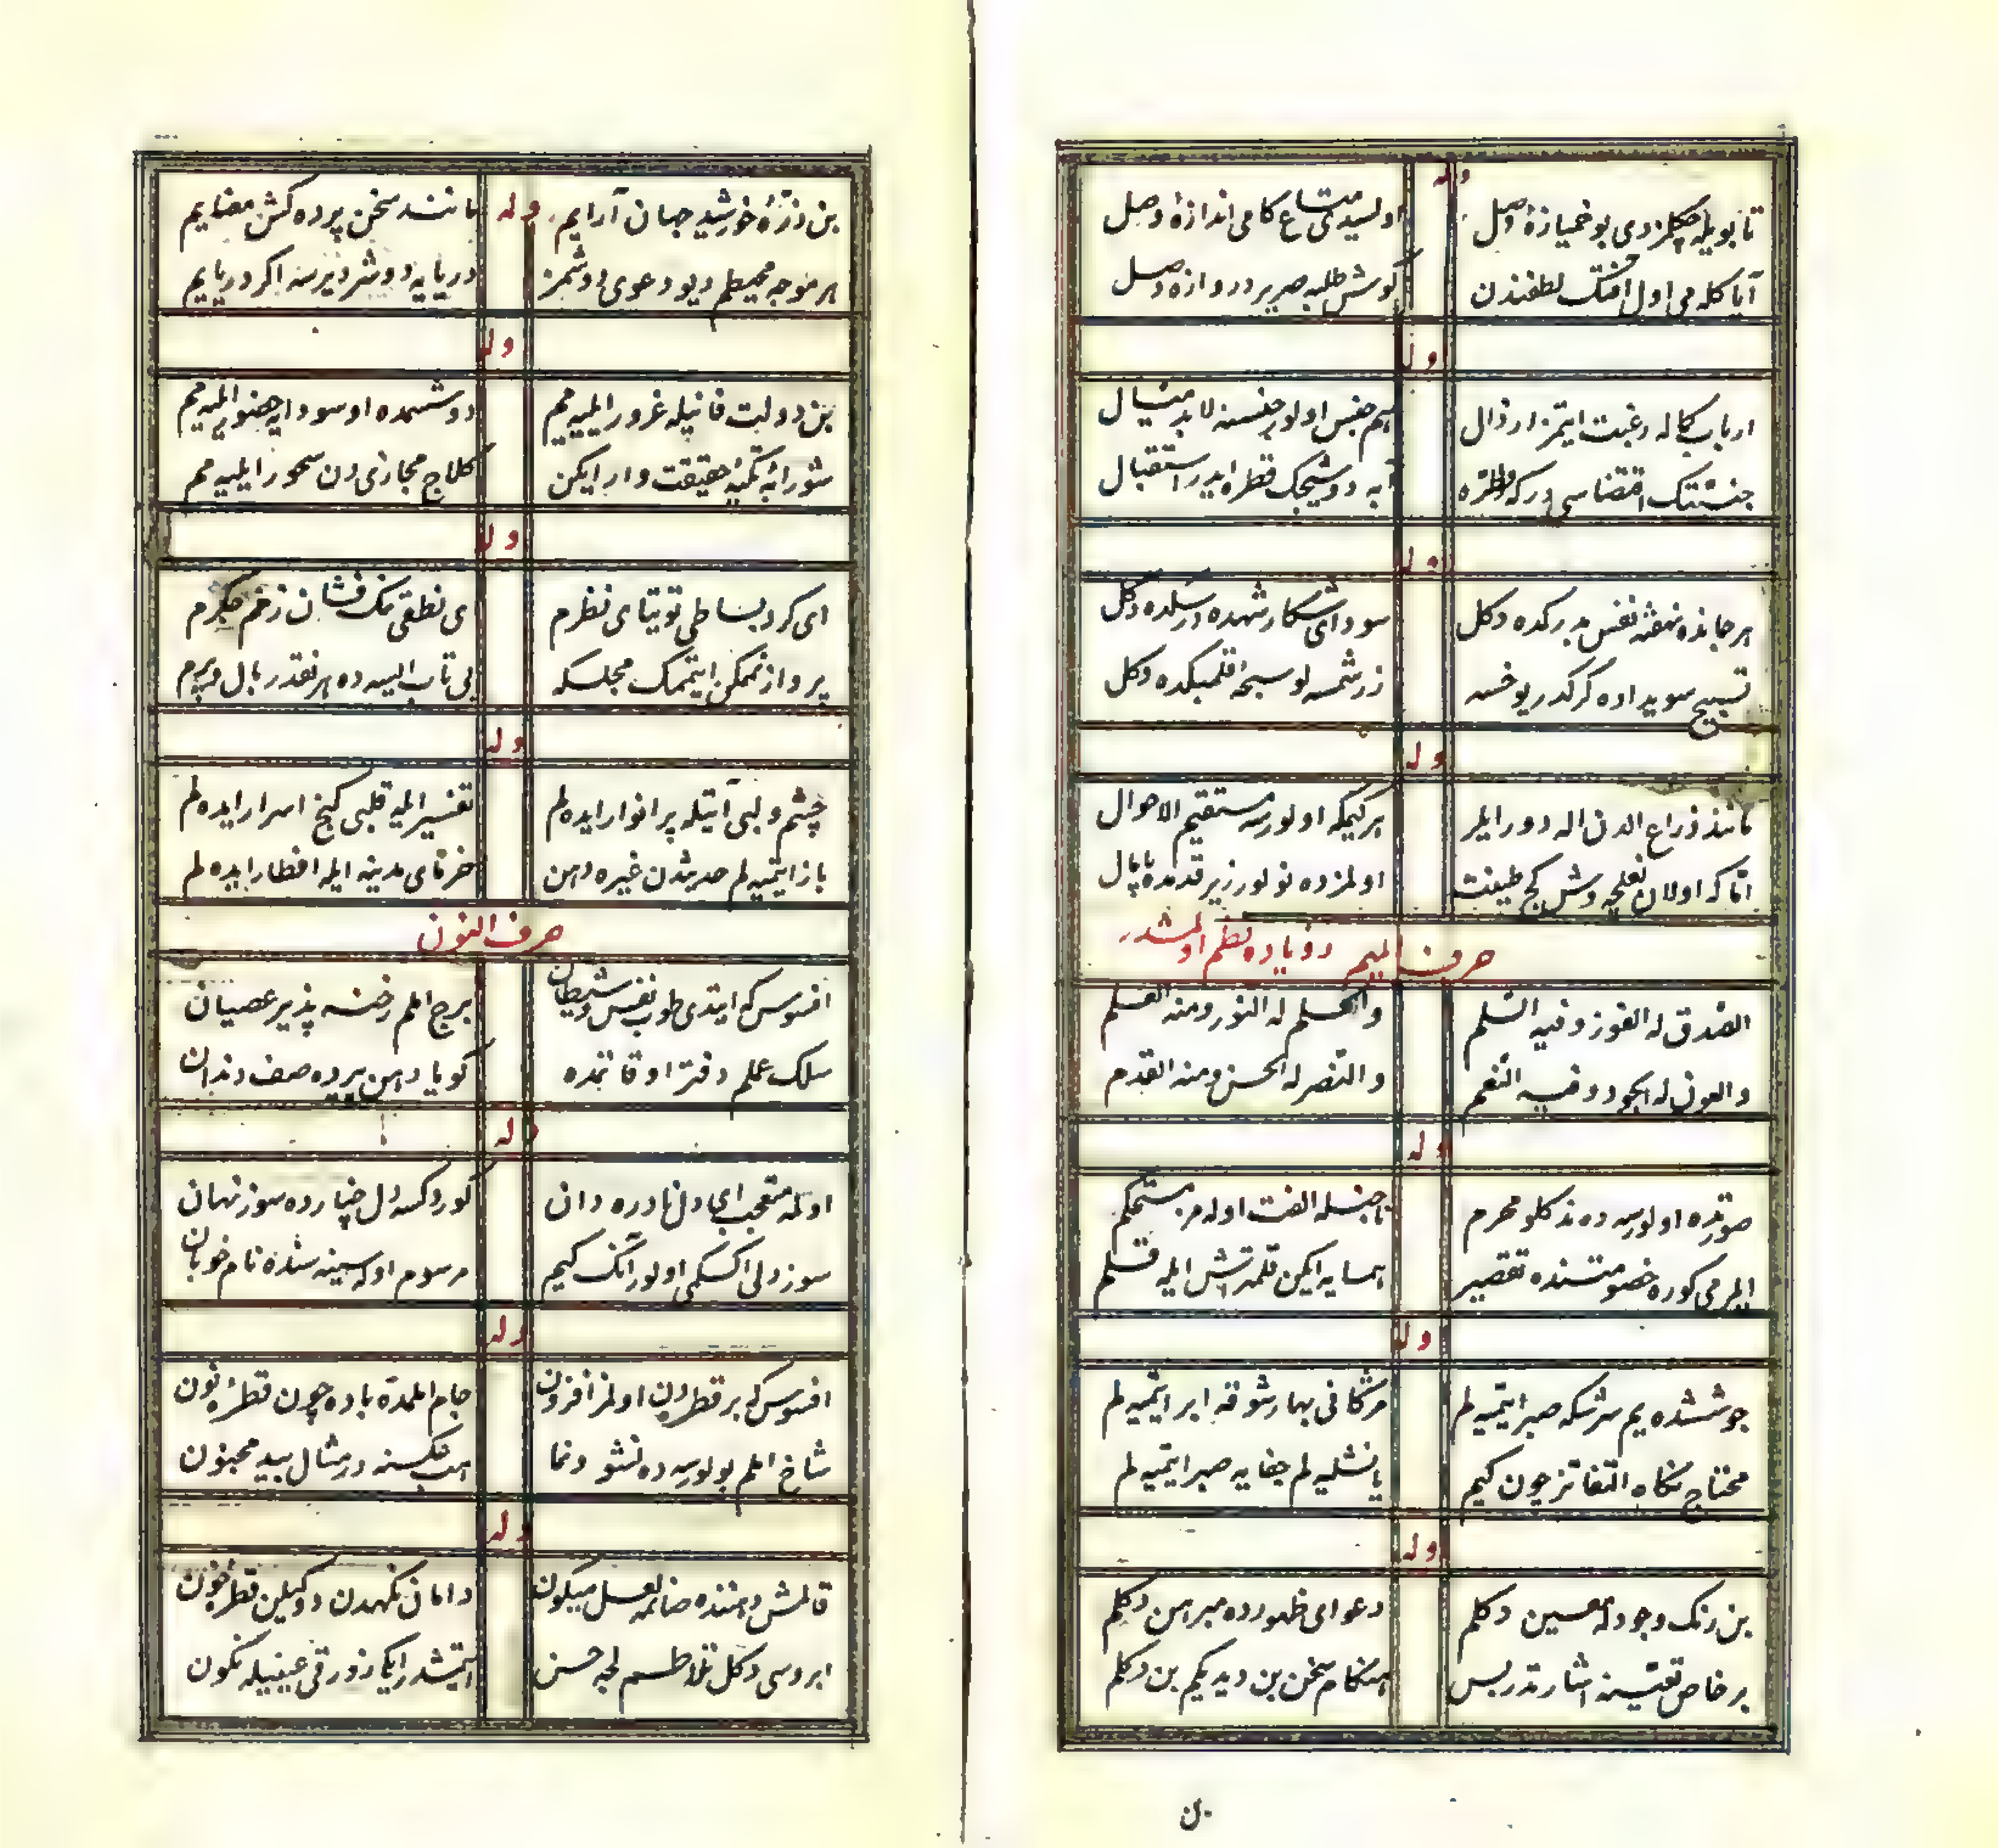 وله
تا بویله چکلزدی بو خمیازهٔ وصل اولسیدی متاع کامی اندازهٔ وصل
آیا کله می اول لطفندن کوش طلبه صریر دروازهٔ وصل
وله
ارباب کماله رغبت ایتمز ارذال هم جنس اولور جنسنه لابد میال
جنسیتک اقتضاسیدر که آبه دوشیجک قطره ایدر استقبال
وله
هر جانده نهفته نفس بدرکده دکل سودای شکار شهده در سلده دکل
تسبیح سویداده کرکدر یوخسه زر شمسه لو سبحه دکل
وله
مانند ذراع الدن اله دور ایلر هر کیمکه اولورسه مستقیم الاحوال
اما که اولان کج طینت اولمزده نولور زیر قدمده پامال
حرف المیم رؤیاده نظم اولمشدر
الصدق له الفوز وفیه السلم والحلم له النور ومنه العلم
والعون له الجود وفیه النعم والنصر له الحسن ومنه القدم
وله
صورتده اولورسه ده نه کلو محرم ناجنسله الفت اوله مز مستحکم
ایلرمی کوره خصومتنده تقصیر همسایه ایکن تیغ ایله قلم
وله
جوششده یم سرشکه صبر ایتمیه لم مژکانی بهار شوقه ابر ایتمیه لم
محتاج نکاه التفاتز چون کیم یا نشلیه لم جفایه صبر ایتمیه لم
وله
بن رنک وجودله معین دکلم دعوای ظهورده مبرهن دکلم
بر خاص تعینه اشارتدر بس هنکام سخن بن دیدیکم بن دکلم
بن ذرهٔ خورشید جهان آرایم وله مانند سخن پرده کش معنایم
هر موجه محیطم دیو دعوی دوشمز دریایه دوشر دیرسه اکر دریایم
وله
بن دولت فانیله غرور ایلیه مم دوشمده او سودایه حضور ایلیه مم
شورابهٔ تکیهٔ حقیقت وار ایکن کلاج مجازی دن سحور ایلیه مم
وله
ای کرد بساطی توتیای نظرم ای نطقی نمک فشان زخم جکرم
پرواز ممکن ایتمک مجلسکه بی تاب ایسه ده هر نقدر بال و پرم
وله
چشم و لبی آیتله پر انوار ایده لم تفسیر ایله قلبی کنج اسرار ایده لم
باز ایتمیه لم حدیثدن غیره دهن خرمای مدینه ایله افطار ایده لم
حرف النون
افسوس که ایتدی طوب نفس و شیطان برج املم رخنه پذیر عصیان
سلک عملم دفتر اوقاتمده کویا دهن پیرده صف دندان
وله
اولمه متعجب ای دل نادره دان کوردکسه دل خیارده سوز نهان
سوز دلی اکسکمی اولور انک کیم مرسوم اوله سینه سنده نام خوبان
وله
افسوس که بر قطره دن اولمز افزون جام املمده باده چون قطرهٔ نون
شاخ املم بولورسه ده نشو و نما در مثال بید مجنون
وله
قالمش دهننده صانمه لعل میکون دامان نکهدن دوکیلن قطرهٔ خون
ابروسی دکل تلاطم لجه حسن ایتمشدر ایکی زورقی عینیله نکون